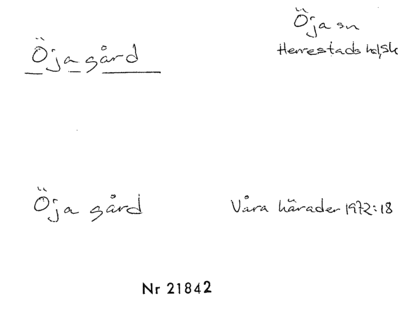 Öja sn
Öja gård
Herrestads hd, Sk
Öja gård
Våra härader 1972:18
Nr 21842